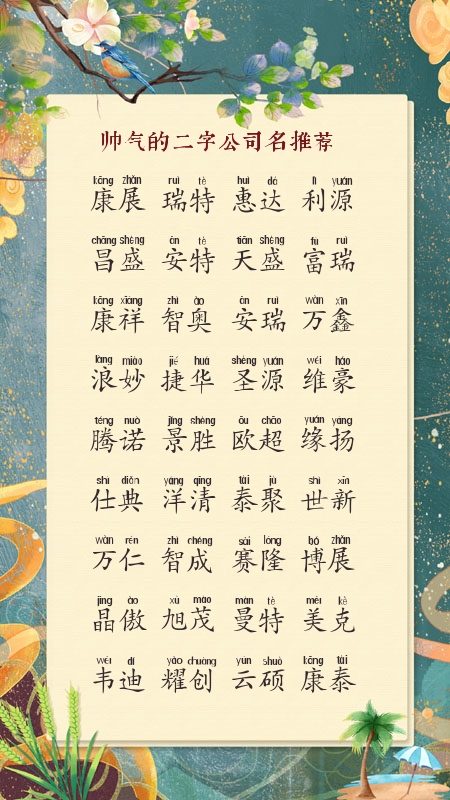 帅气的二字公司名推荐
kāng zhǎn ruì tè huì dá lì yuán
康展 瑞特 惠达 利源
chāng shèng ān tè tiān shèng fù ruì
昌盛 安特 天盛 富瑞
kāng xiáng zhì ào ān ruì wàn xīn
康祥 智奥 安瑞 万鑫
làng miào jié huá shèng yuán wéi háo
浪妙 捷华 圣源 维豪
téng nuò jǐng shèng ōu chāo yuán yáng
腾诺 景胜 欧超 缘扬
shì diǎn yáng qīng tài jù shì xīn
仕典 洋清 泰聚 世新
wàn rén zhì chéng sài lóng bó zhǎn
万仁 智成 赛隆 博展
jīng ào xù mào màn tè měi kè
晶傲 旭茂 曼特 美克
wéi dí yào chuàng yún shuò kāng tài
韦迪 耀创 云硕 康泰